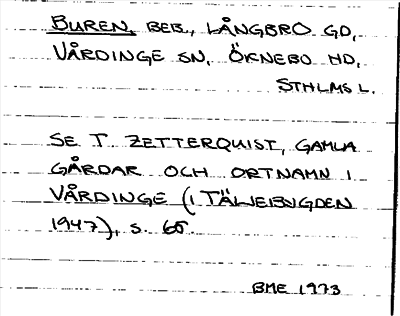 BUREN, BEB., LÅNGBRO GD,
VÅRDINGE SN, ÖKNEBO HD,
STHLMS L.
SE T. ZETTERQUIST, GAMLA
GÅRDAR OCH ORTNAMN I
VÅRDINGE (I TÄLJEBYGDEN
1947), S. 65.
BME 1973